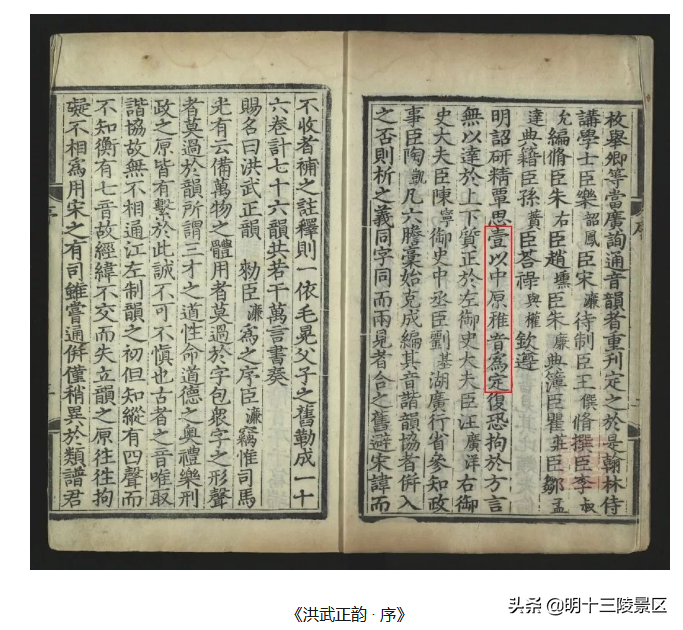 枚舉卿等當廣詢通音韻者重刊定之於是翰林侍
講學士臣樂韶鳳臣宋濂待制臣王僎脩撰臣李叔
允編脩臣朱右臣趙壎臣朱廉典簿臣瞿莊臣鄒孟
達典籍臣孫蕡臣荅祿與權欽遵
明詔研精覃思壹以中原雅音爲定復恐拘於方言
無以達於上下質正於左御史大夫臣汪廣洋右御
史大夫臣陳寧御史中丞臣劉基湖廣行省參知政
事臣陶凱凡六謄藁始克成編其音諧韻協者併入
之否則析之義同字同而兩見者合之舊避宋諱而
不收者補之註釋則一依毛晃父子之舊勒成一十
六卷計七十六韻共若干萬言書奏
賜名曰洪武正韻 勑臣濂爲之序臣濂竊惟司馬
光有云備萬物之體用者莫過於字包衆字之形聲
者莫過於韻所謂三才之道性命道德之奧禮樂刑
政之原皆有繫於此誠不可不愼也古者之音唯取
諧協故無不相通江左制韻之初但知縱有四聲而
不知衡有七音故經緯不交而失立韻之原往往拘
礙不相爲用宋之有司雖嘗通併僅稍異於類譜君
《洪武正韵 · 序》
头条 @明十三陵景区